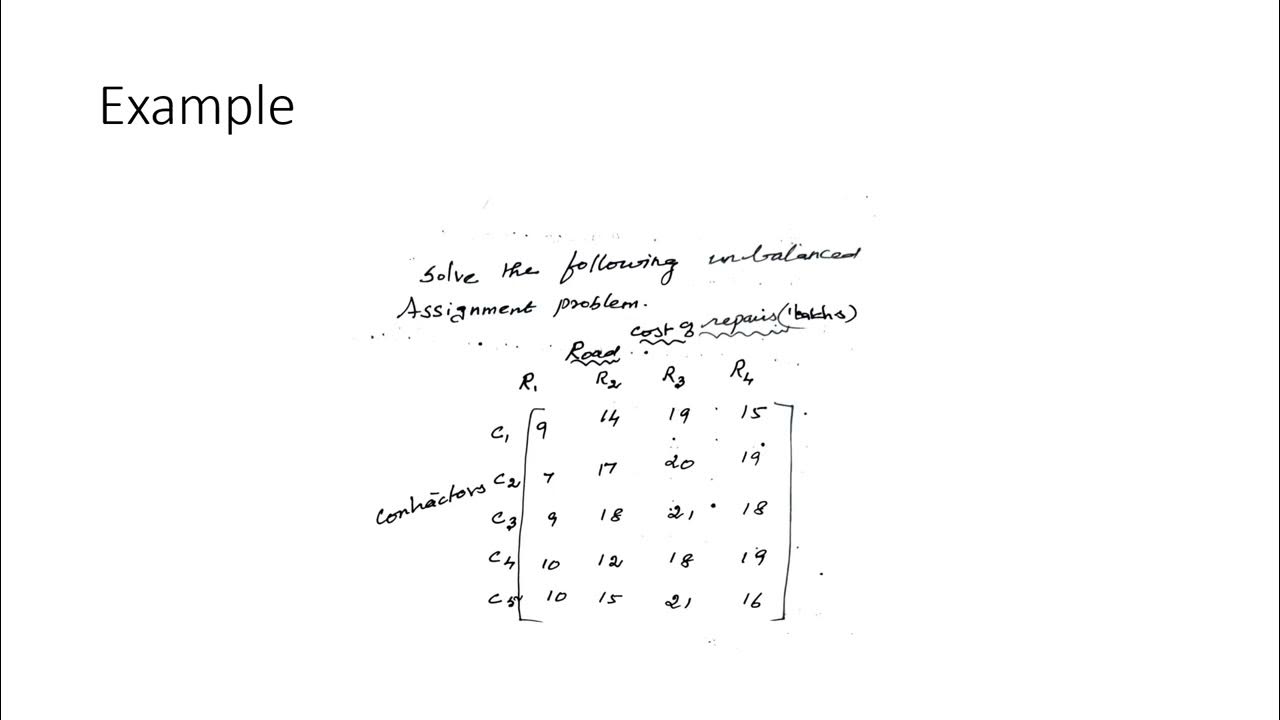 Example
Solve the following unbalanced
Assignment problem.
Cost of repairs (lakhs)
Road
R1 R2 R3 R4
C1 9 14 19 15
C2 7 17 20 19
Contractors
C3 9 18 21 18
C4 10 12 18 19
C5 10 15 21 16